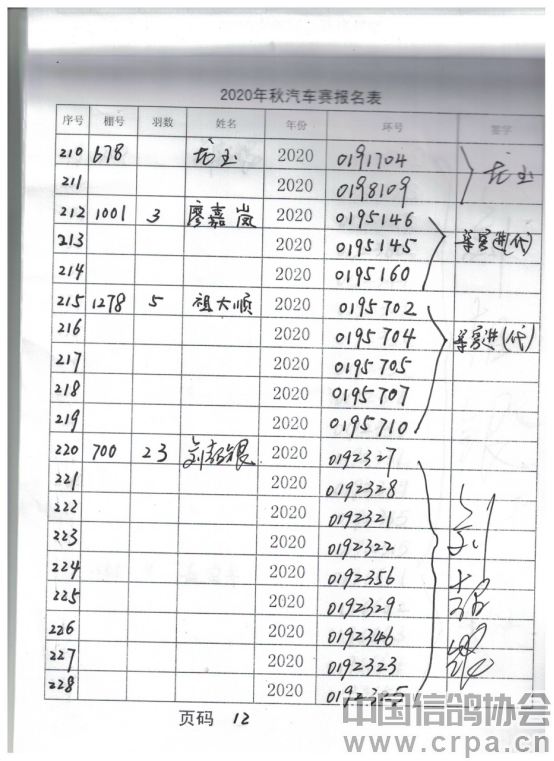 2020年秋汽车赛报名表
序号 棚号 羽数 姓名 年份 环号 签字
210 678 龙玉 2020 0191704 龙玉
211 2020 0198109
212 1001 3 廖嘉岚 2020 0195146
213 2020 0195145 (代)
214 2020 0195160
215 1278 5 祖大顺 2020 0195702
216 2020 0195704 (代)
217 2020 0195705
218 2020 0195707
219 2020 0195710
220 700 23 2020 0192327
221 2020 0192328
222 2020 0192321
223 2020 0192322
224 2020 0192356
225 2020 0192329
226 2020 0192346
227 2020 0192323
228 2020
页码 12
中国信鸽协会
www.crpa.cn